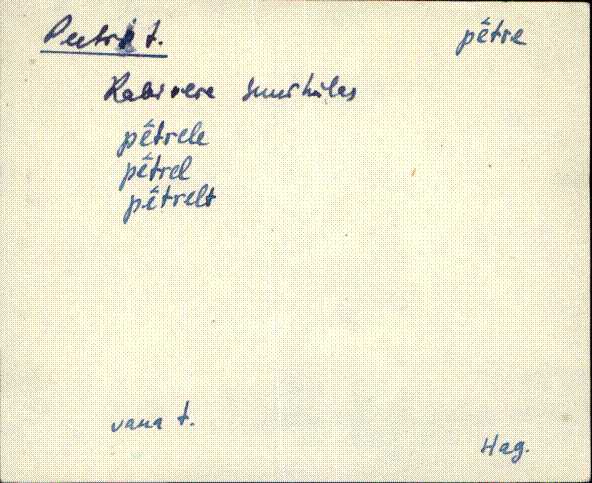 Peetri t. pētre
Rabivere suurkülas
pētrele
pētrel
pētrelt
vana t.
Hag.